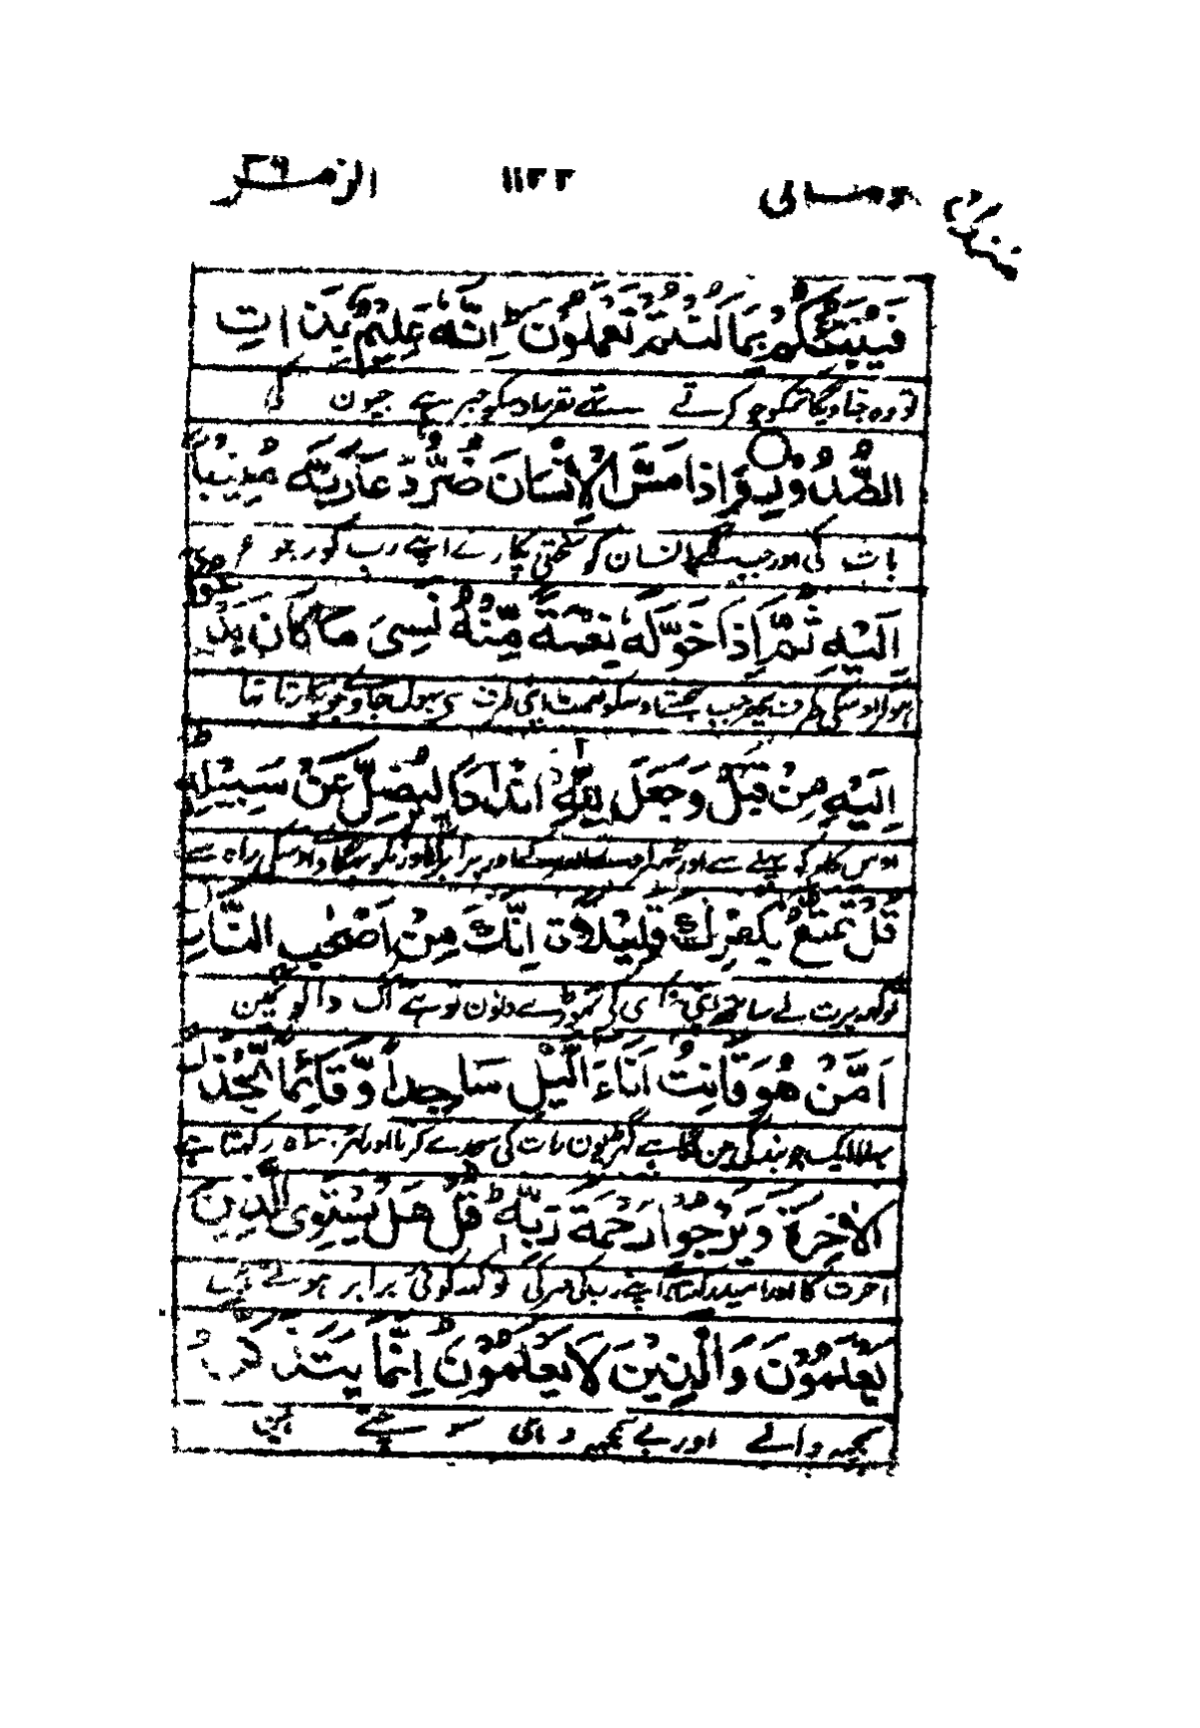 الزمر ٣٩ ١١٢٢ ومالى ٢٣
فَيُنَبِّئُكُمْ بِمَا كُنْتُمْ تَعْمَلُوْنَ ؕ اِنَّهٗ عَلِيْمٌۢ بِذَاتِ
تو وہ جتاویگا تمکو جو کرتے تھے خبر ہے جیون کی
الصُّدُوْرِ وَاِذَا مَسَّ الْاِنْسَانَ ضُرٌّ دَعَا رَبَّهٗ مُنِيْبًا
بات کی اور جب لگے انسان کو سختی پکارے اپنے رب کو رجوع
اِلَيْهِ ثُمَّ اِذَا خَوَّلَهٗ نِعْمَةً مِّنْهُ نَسِيَ مَا كَانَ يَدْعُوْۤا
ہوکر اوسکی طرف پھر جب نعمت اپنی طرف سے بھول جاوے جو پکارتا تھا
اِلَيْهِ مِنْ قَبْلُ وَجَعَلَ لِلّٰهِ اَنْدَادًا لِّيُضِلَّ عَنْ سَبِيْلِهٖ ؕ
پہلے سے اور برابر اوسکی راہ سے
قُلْ تَمَتَّعْ بِكُفْرِكَ قَلِيْلًا ۖ اِنَّكَ مِنْ اَصْحٰبِ النَّارِ
تو کہہ برت لے ساتھ اپنی تھوڑے دنون تو ہے آگ والوں مین
اَمَّنْ هُوَ قَانِتٌ اٰنَآءَ الَّيْلِ سَاجِدًا وَّقَآئِمًا يَّحْذَرُ
بھلا ایک جو بندگی مین لگا ہے گھڑیون رات کی سجدے کرتا اور رکھتا ہے
الْاٰخِرَةَ وَيَرْجُوْا رَحْمَةَ رَبِّهٖ ؕ قُلْ هَلْ يَسْتَوِى الَّذِيْنَ
آخرت کا اور امید رکھتا اپنے رب کی مہر کی تو کہہ کوئی برابر ہوتے ہیں
يَعْلَمُوْنَ وَالَّذِيْنَ لَا يَعْلَمُوْنَ ؕ اِنَّمَا يَتَذَكَّرُ
سمجھہ والے اور بے سمجھہ وہی سوچتے ہین